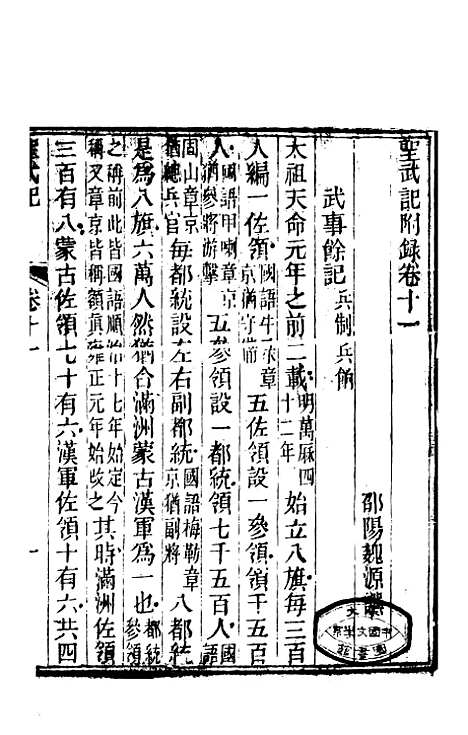 聖武記附錄卷十一
邵陽魏源
武事餘記 兵制兵餉
太祖天命元年之前二載 明萬曆四十二年 始立八旗每三百
人編一佐領 國語牛彔章京猶守備 五佐領設一參領領千五百
人 國語甲喇章京猶參將游擊 五參領設一都統領七千五百人 國語
固山章京猶總兵官 每都統設左右副都統 國語梅勒章京猶副將 八都統
是爲八旗六萬人然猶合滿洲蒙古漢軍爲一也 都統參領
之稱前此皆國語順治十七年始定今稱又章京皆稱額眞雍正元年始改之 其時滿洲佐領
三百有八蒙古佐領七十有六漢軍佐領十有六共四
聖武記
卷十一
一